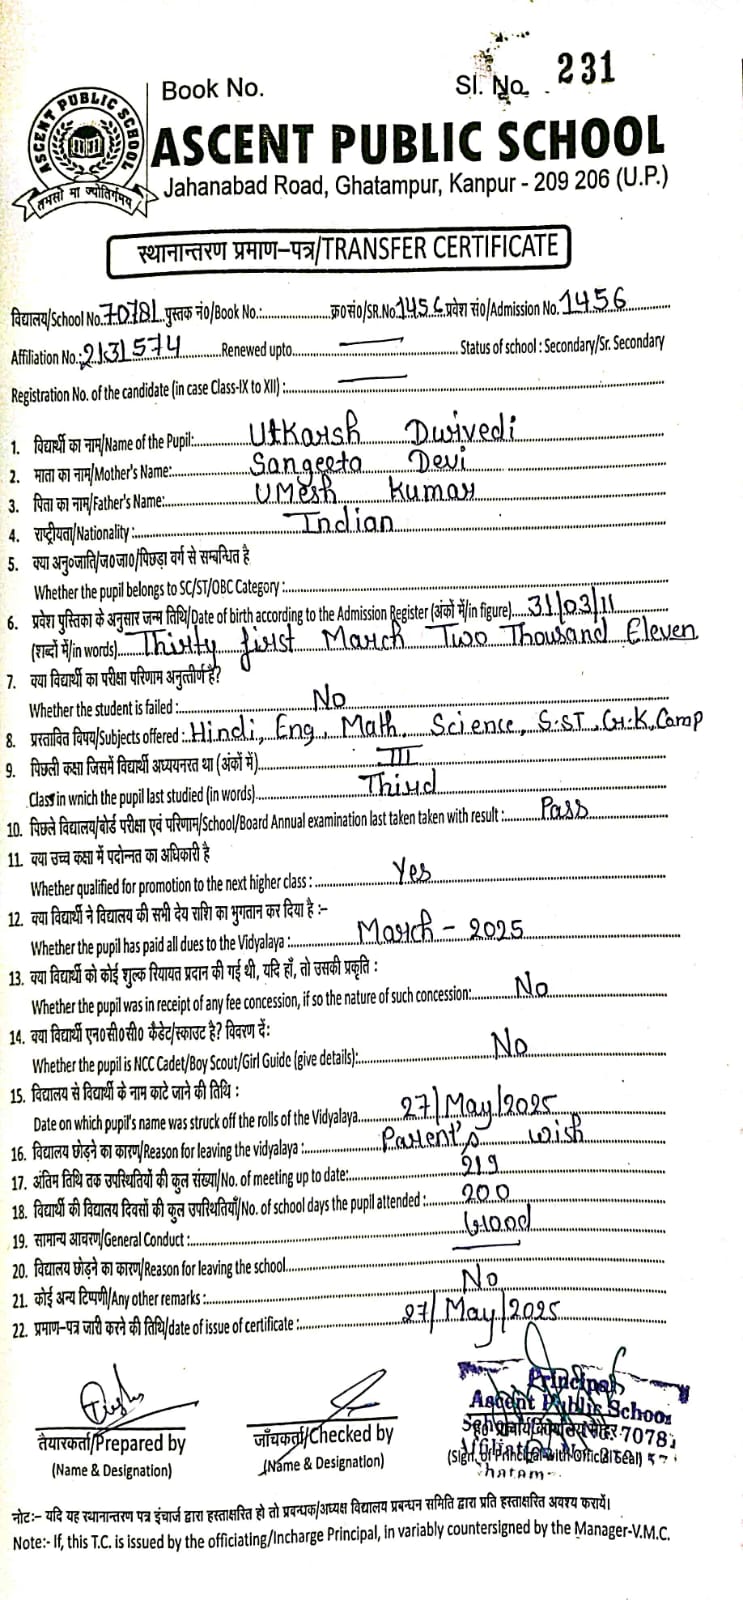 Book No.
Sl. No. 231
ASCENT PUBLIC SCHOOL
तमसो मा ज्योतिर्गमय
ASCENT PUBLIC SCHOOL
Jahanabad Road, Ghatampur, Kanpur - 209 206 (U.P.)
स्थानान्तरण प्रमाण-पत्र/TRANSFER CERTIFICATE
विद्यालय/School No. 70781 पुस्तक नं०/Book No.:.......... क्र०सं०/SR.No. 1456 प्रवेश सं०/Admission No. 1456
Affiliation No.: 2131574 Renewed upto.......... Status of school : Secondary/Sr. Secondary
Registration No. of the candidate (in case Class-IX to XII) :..........
1. विद्यार्थी का नाम/Name of the Pupil: Utkarsh Dwivedi
2. माता का नाम/Mother's Name: Sangeeta Devi
3. पिता का नाम/Father's Name: Umesh Kumar
4. राष्ट्रीयता/Nationality : Indian
5. क्या अनु०जाति/ज०जा०/पिछड़ा वर्ग से सम्बन्धित है
Whether the pupil belongs to SC/ST/OBC Category :..........
6. प्रवेश पुस्तिका के अनुसार जन्म तिथि/Date of birth according to the Admission Register (अंकों में/in figure) 31/03/11
(शब्दों में/in words) Thirty first March Two Thousand Eleven
7. क्या विद्यार्थी का परीक्षा परिणाम अनुत्तीर्ण है?
Whether the student is failed : No
8. प्रस्तावित विषय/Subjects offered : Hindi, Eng, Math, Science, S.ST, G.K, Comp
9. पिछली कक्षा जिसमें विद्यार्थी अध्ययनरत था (अंकों में) III
Class in wnich the pupil last studied (in words) Third
10. पिछले विद्यालय/बोर्ड परीक्षा एवं परिणाम/School/Board Annual examination last taken taken with result : Pass
11. क्या उच्च कक्षा में पदोन्नत का अधिकारी है
Whether qualified for promotion to the next higher class : Yes
12. क्या विद्यार्थी ने विद्यालय की सभी देय राशि का भुगतान कर दिया है :-
Whether the pupil has paid all dues to the Vidyalaya : March - 2025
13. क्या विद्यार्थी को कोई शुल्क रियायत प्रदान की गई थी, यदि हाँ, तो उसकी प्रकृति :
Whether the pupil was in receipt of any fee concession, if so the nature of such concession: No
14. क्या विद्यार्थी एन०सी०सी० कैडेट/स्काउट है? विवरण दें:
Whether the pupil is NCC Cadet/Boy Scout/Girl Guide (give details): No
15. विद्यालय से विद्यार्थी के नाम काटे जाने की तिथि :
Date on which pupil's name was struck off the rolls of the Vidyalaya 27/May/2025
16. विद्यालय छोड़ने का कारण/Reason for leaving the vidyalaya : Parent's wish
17. अंतिम तिथि तक उपस्थितियों की कुल संख्या/No. of meeting up to date: 219
18. विद्यार्थी की विद्यालय दिवसों की कुल उपस्थितियाँ/No. of school days the pupil attended : 200
19. सामान्य आचरण/General Conduct : Good
20. विद्यालय छोड़ने का कारण/Reason for leaving the school..........
21. कोई अन्य टिप्पणी/Any other remarks : No
22. प्रमाण-पत्र जारी करने की तिथि/date of issue of certificate : 27/May/2025
तैयारकर्ता/Prepared by
(Name & Designation)
जाँचकर्ता/Checked by
(Name & Designation)
Principal
Ascent Public School
नोट:- यदि यह स्थानान्तरण पत्र इंचार्ज द्वारा हस्ताक्षरित हो तो प्रबन्धक/अध्यक्ष विद्यालय प्रबन्धन समिति द्वारा प्रति हस्ताक्षरित अवश्य करायें।
Note:- If, this T.C. is issued by the officiating/Incharge Principal, in variably countersigned by the Manager-V.M.C.